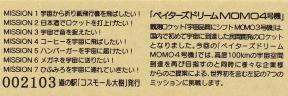 MISSION 1 宇宙から折り紙飛行機を飛ばしたい!
MISSION 2 日本酒でロケットを打上げたい!
MISSION 3 宇宙で音を捉えたい!
MISSION 4 コーヒーを宇宙に飛ばしたい!
MISSION 5 ハンバーガーを宇宙に届けたい!
MISSION 6 メガネを宇宙に送りたい!
MISSION 7 ひふみろを宇宙に連れていきたい!
002103 道の駅「コスモール大樹」発行
「ペイターズドリームMOMO4号機」
観測ロケット「宇宙品質にシフトMOMO3号機」は
国内で初めて宇宙に到達した民間開発のロケット
となりました。今回の「ペイターズドリーム
MOMO4号機」では、高度100kmの宇宙空間
到達を再び目指すのと同時に様々な企業様
からのご提案による、世界初を含む記の7つの
ミッションに挑戦します。